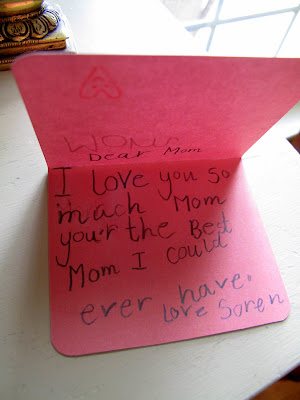 Dear Mom
I love you so
mach Mom
your the Best
Mom I could
ever have.
love Soren